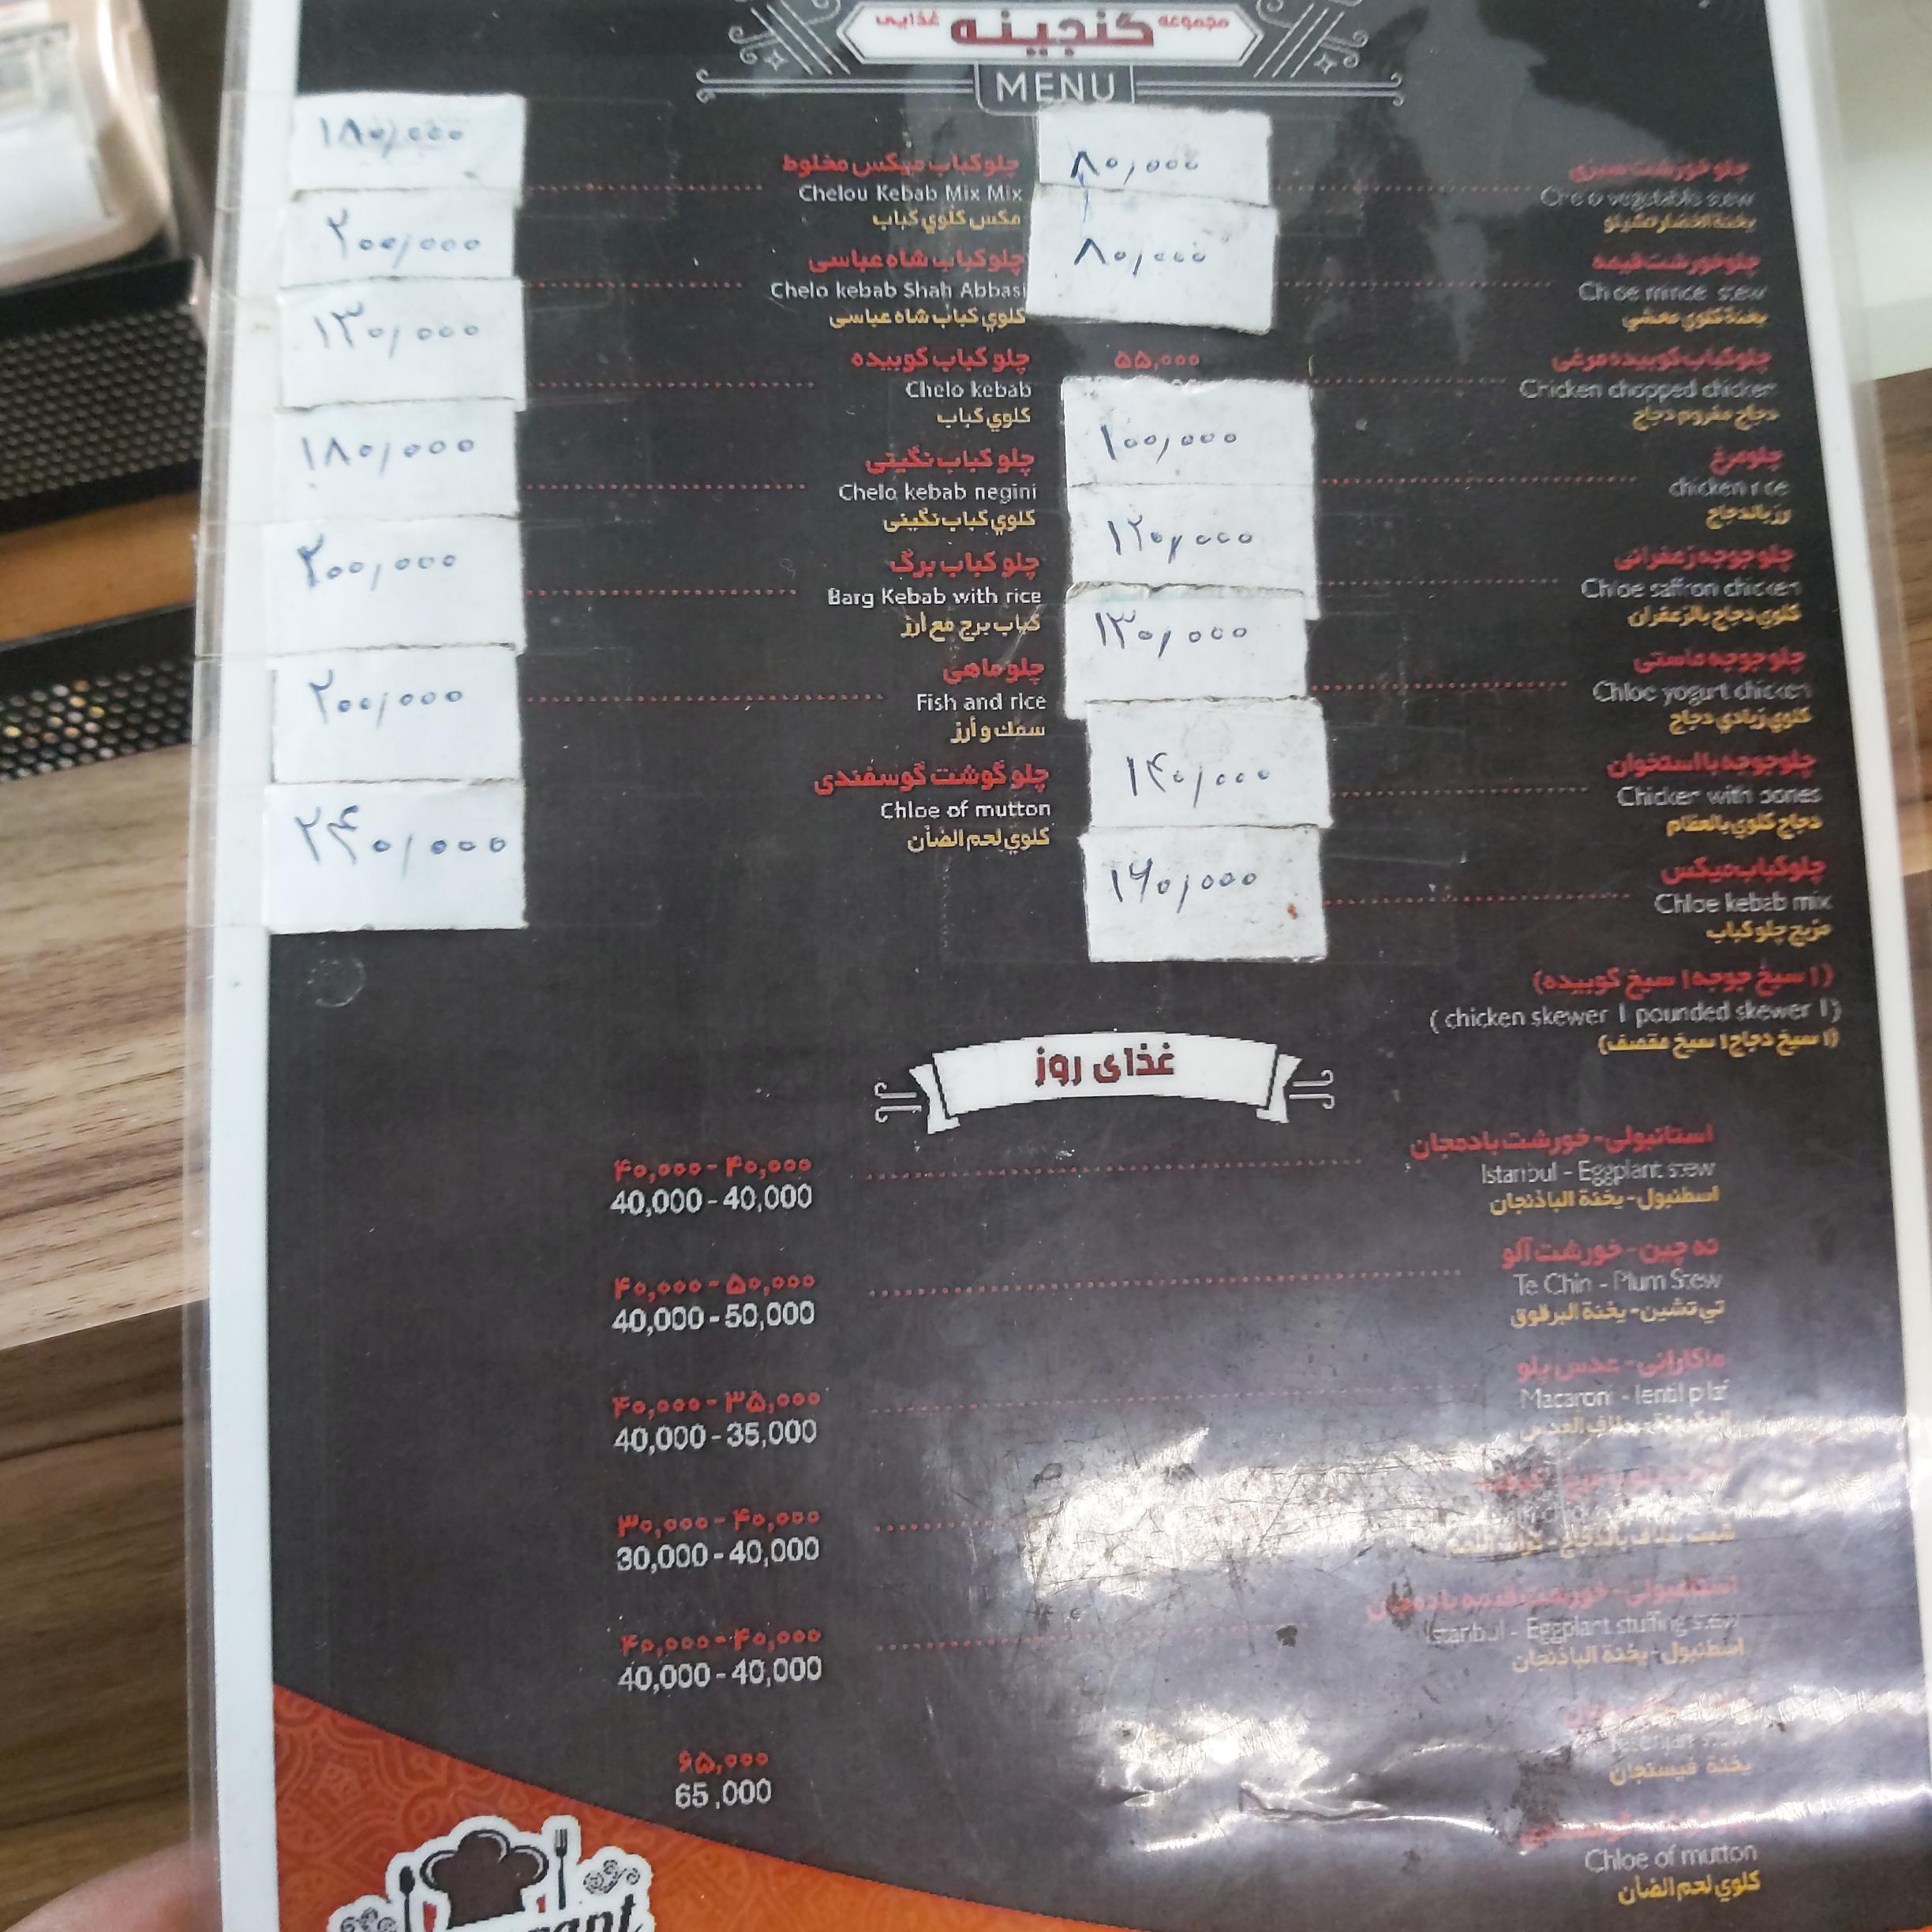 مجموعه گنجینه غذایی
MENU
چلو خورشت سبزی
۸۰,۰۰۰
Chelo vegetable stew
چلو خورشت قیمه
۸۰,۰۰۰
Chloe mince stew
يخنة كلوي محشي
چلو کباب کوبیده مرغی
۵۵,۰۰۰
Chicken chopped chicken
دجاج مفروم دجاج
چلو مرغ
۱۰۰,۰۰۰
chicken rice
رز بالدجاج
چلو جوجه زعفرانی
۱۲۰,۰۰۰
Chloe saffron chicken
كلوي دجاج بالزعفران
چلو جوجه ماستی
۱۳۰,۰۰۰
Chloe yogurt chicken
كلوي زبادي دجاج
چلو جوجه با استخوان
۱۴۰,۰۰۰
Chicken with bones
دجاج كلوي بالعظام
چلو کباب میکس
۱۶۰,۰۰۰
Chloe kebab mix
مزيج چلو كباب
(۱ سیخ جوجه ۱ سیخ کوبیده)
( chicken skewer 1 pounded skewer 1)
(۱ سيخ دجاج ۱ سيخ مقصف)
چلو کباب میکس مخلوط
۱۸۰,۰۰۰
Chelou Kebab Mix Mix
مكس كلوي كباب
چلو کباب شاه عباسی
۲۰۰,۰۰۰
Chelo kebab Shah Abbasi
كلوي كباب شاه عباسى
چلو کباب کوبیده
۱۳۰,۰۰۰
Chelo kebab
كلوي كباب
چلو کباب نگینی
۱۸۰,۰۰۰
Chelo kebab negini
كلوي كباب نگینی
چلو کباب برگ
۲۰۰,۰۰۰
Barg Kebab with rice
كباب برج مع أرز
چلو ماهی
۲۰۰,۰۰۰
Fish and rice
سمك و أرز
چلو گوشت گوسفندی
۲۴۰,۰۰۰
Chloe of mutton
كلوي لحم الضأن
غذای روز
استانبولی - خورشت بادمجان
۴۰,۰۰۰ - ۴۰,۰۰۰
Istanbul - Eggplant stew
40,000 - 40,000
اسطنبول - يخنة الباذنجان
ته چین - خورشت آلو
۴۰,۰۰۰ - ۵۰,۰۰۰
Te Chin - Plum Stew
40,000 - 50,000
تي تشين - يخنة البرقوق
ماکارانی - عدس پلو
۴۰,۰۰۰ - ۳۵,۰۰۰
Macaroni - lentil pilaf
40,000 - 35,000
۳۰,۰۰۰ - ۴۰,۰۰۰
30,000 - 40,000
استانبولی - خورشت قیمه بادمجان
۴۰,۰۰۰ - ۴۰,۰۰۰
Istanbul - Eggplant stuffing stew
40,000 - 40,000
اسطنبول - يخنة الباذنجان
۶۵,۰۰۰
65,000
يخنة فيسنجان
Chloe of mutton
كلوي لحم الضأن